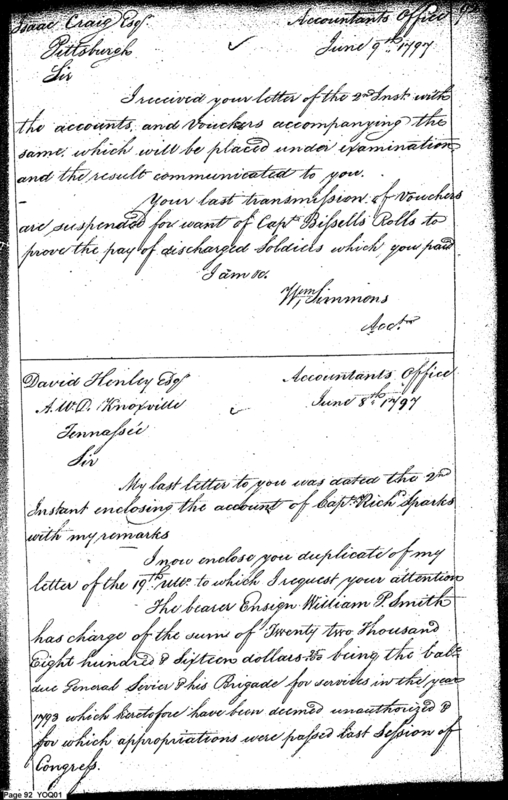 Isaac Craig Esqr
Accountants Office
Pittsburgh
June 9th 1797
Sir
I received your letter of the 2nd Inst. with
the accounts, and Vouchers accompanying the
same, which will be placed under examination
and the result communicated to you.
Your last transmission of Vouchers
are suspended for want of Capts Bissells Rolls to
prove the pay of discharged Soldiers which you paid
I am &c.
Wm Simmons
Acctr
David Henley Esqr
Accountants Office
A.W.D. Knoxville
June 8th 1797
Tennassee
Sir
My last letter to you was dated the 2nd
Instant enclosing the account of Capt. Richd Sparks
with my remarks
I now enclose you duplicate of my
letter of the 19th ulto. to which I request your attention
The bearer Ensign William P. Smith
has charge of the sum of Twenty two Thousand
Eight hundred & Sixteen dollars being the balce
due General Sevier & his Brigade for services in the year
1793 which heretofore have been deemed unauthorized &
for which appropriations were passed last Session of
Congress.
Page 92 YOQ01